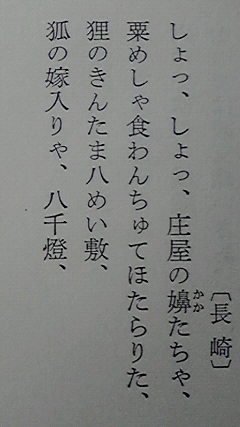 〔長崎〕
しょっ、しょっ、庄屋の嬶たちゃ、
かか
粟めしゃ食わんちゅてほたらりた、
狸のきんたま八めい敷、
狐の嫁入りゃ、八千燈、